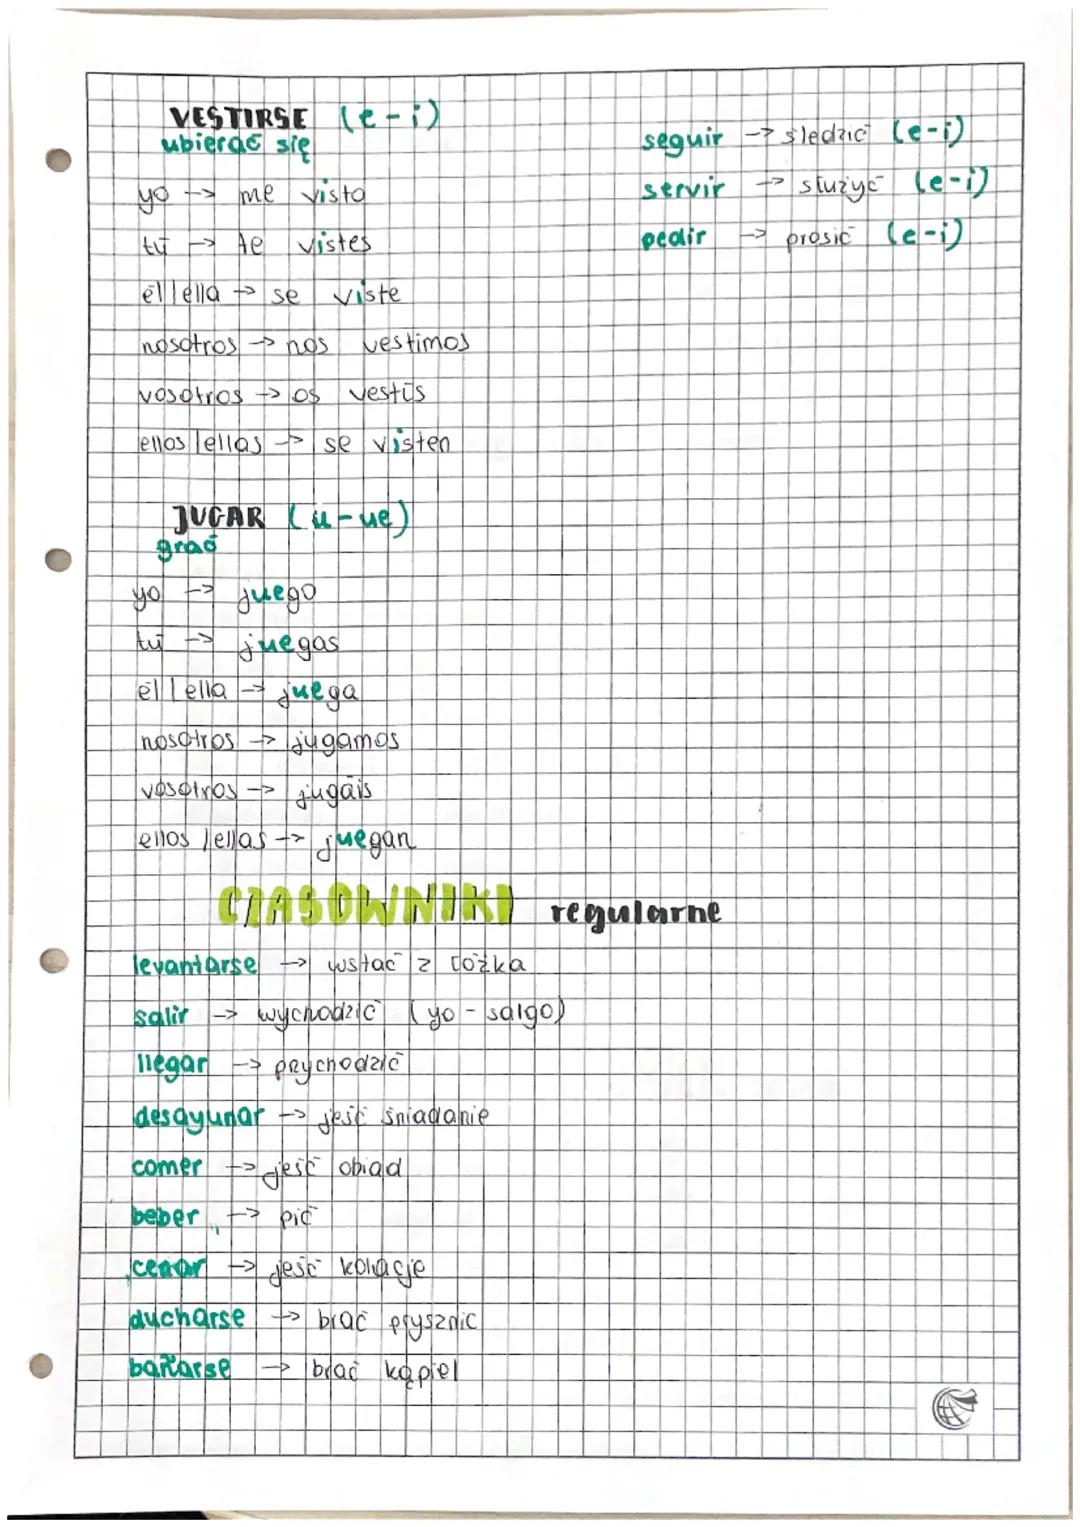 VESTIRSE (e-i)
ubierać się
yo -> me visto
tú -> te vistes
él/ella -> se viste
nosotros -> nos vestimos
vosotros -> os vestís
ellos/ellas -> se visten
seguir -> śledzić (e-i)
servir -> służyć (e-i)
pedir -> prosić (e-i)
JUGAR (u-ue)
grać
yo -> juego
tú -> juegas
él/ella -> juega
nosotros -> jugamos
vosotros -> jugáis
ellos/ellas -> juegan
CZASOWNIKI regularne
levantarse -> wstać z łóżka
salir -> wychodzić (yo - salgo)
llegar -> przychodzić
desayunar -> jeść śniadanie
comer -> jeść obiad
beber -> pić
cenar -> jeść kolacje
ducharse -> brać prysznic
bañarse -> brać kąpiel